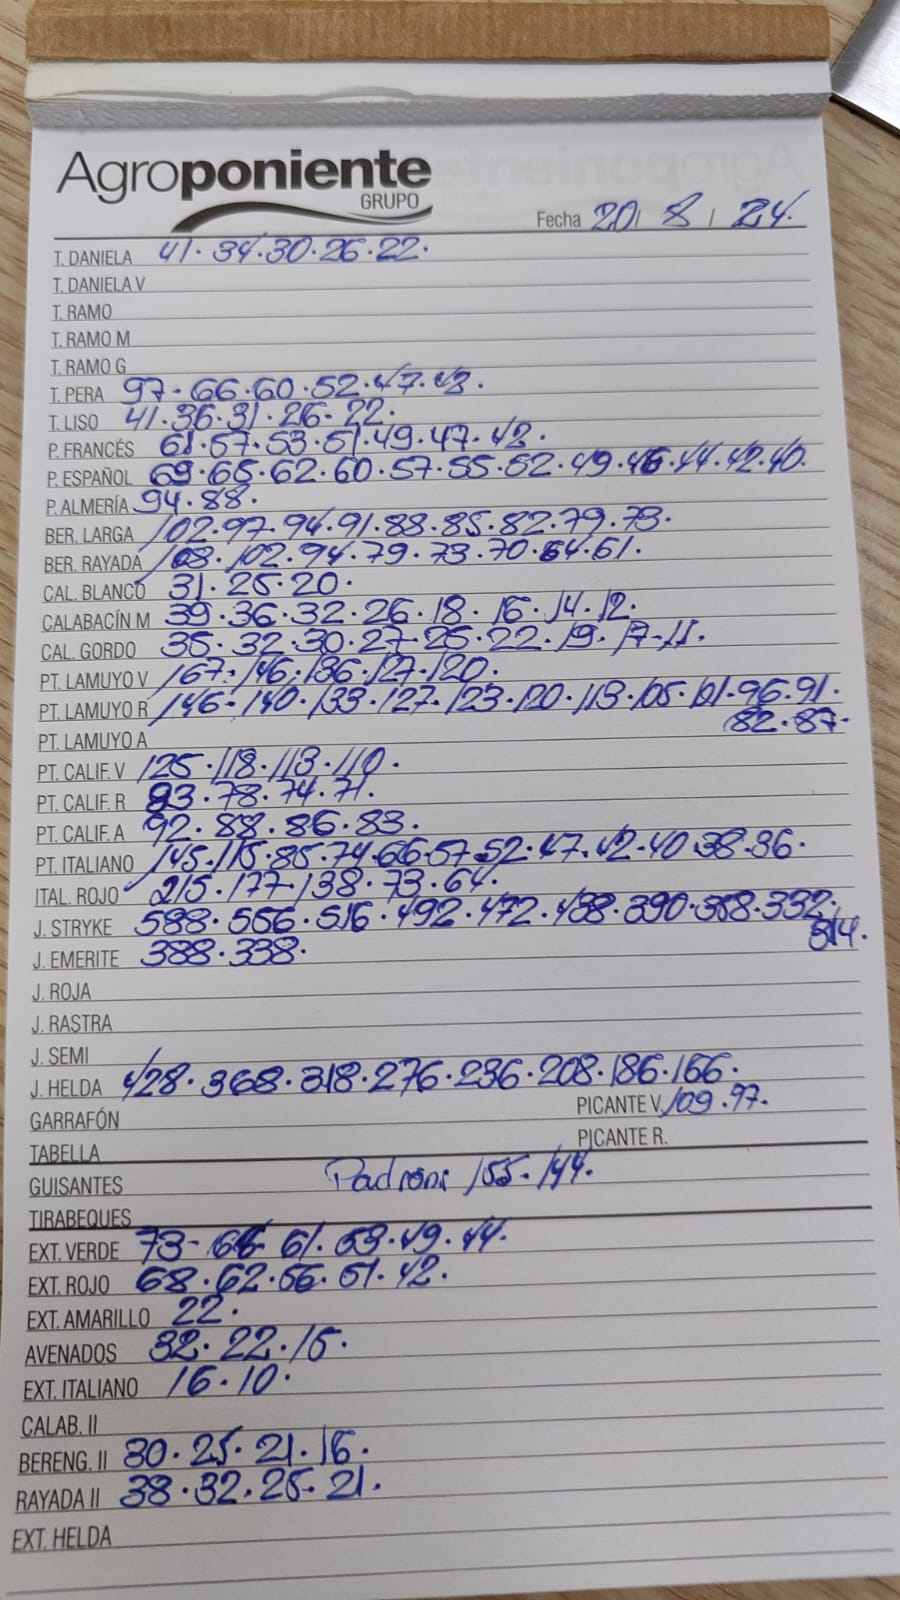 Agroponiente
GRUPO
Fecha 20/ 8 / 24.
T. DANIELA 41. 34.30.26.22.
T. DANIELA V
T. RAMO
T. RAMO M
T. RAMO G
T. PERA 97.66.60.52.47.43.
T. LISO 41.36.31.26.22.
P. FRANCÉS 61.57.53.51.49.47.42.
P. ESPAÑOL 69.65.62.60.57.55.52.49.46.44.42.40.
P. ALMERÍA 94.88.
BER. LARGA 102.97.94.91.88.85.82.79.73.
BER. RAYADA 108.102.94.79.73.70.64.61.
CAL. BLANCO 31.25.20.
CALABACÍN M 39.36.32.26.18.16.14.12.
CAL. GORDO 35.32.30.27.25.22.19.17.11.
PT. LAMUYO V 167.146.136.127.120.
PT. LAMUYO R 146.140.133.127.123.120.113.105.101.96.91.
82.87.
PT. LAMUYO A
PT. CALIF. V 125.118.113.110.
PT. CALIF. R 93.78.74.71.
PT. CALIF. A 92.88.86.83.
PT. ITALIANO 145.115.85.74.66.57.52.47.42.40.38.36.
ITAL. ROJO 215.177.138.73.64.
J. STRYKE 588.556.516.492.472.438.390.358.332.
314.
J. EMERITE 388.338.
J. ROJA
J. RASTRA
J. SEMI
J. HELDA 428.368.318.276.236.208.186.166.
GARRAFÓN PICANTE V. 109.97.
TABELLA PICANTE R.
GUISANTES Padron 155.144.
TIRABEQUES
EXT. VERDE 73-66 61.53.49.44.
EXT. ROJO 68.62.56.51.42.
EXT. AMARILLO 22.
AVENADOS 32.22.15.
EXT. ITALIANO 16.10.
CALAB. II
BERENG. II 30.25.21.16.
RAYADA II 38.32.25.21.
EXT. HELDA